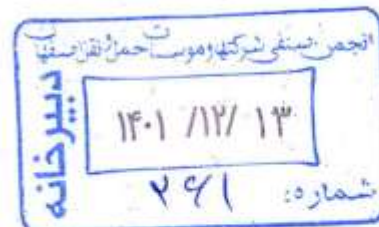 انجمن صنفی شرکتها و موسسات حمل و نقل اصفهان
دبیرخانه
۱۴۰۱ /۱۲/ ۱۳
شماره: ۲۶۱